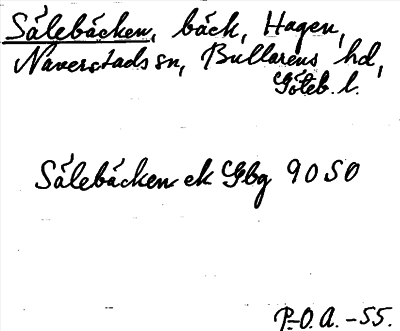 Sålebäcken, bäck, Hagen,
Naverstads sn, Bullarens hd,
Göteb. l.
Sålebäcken ek Gbg 9050
P.O.A. -55.